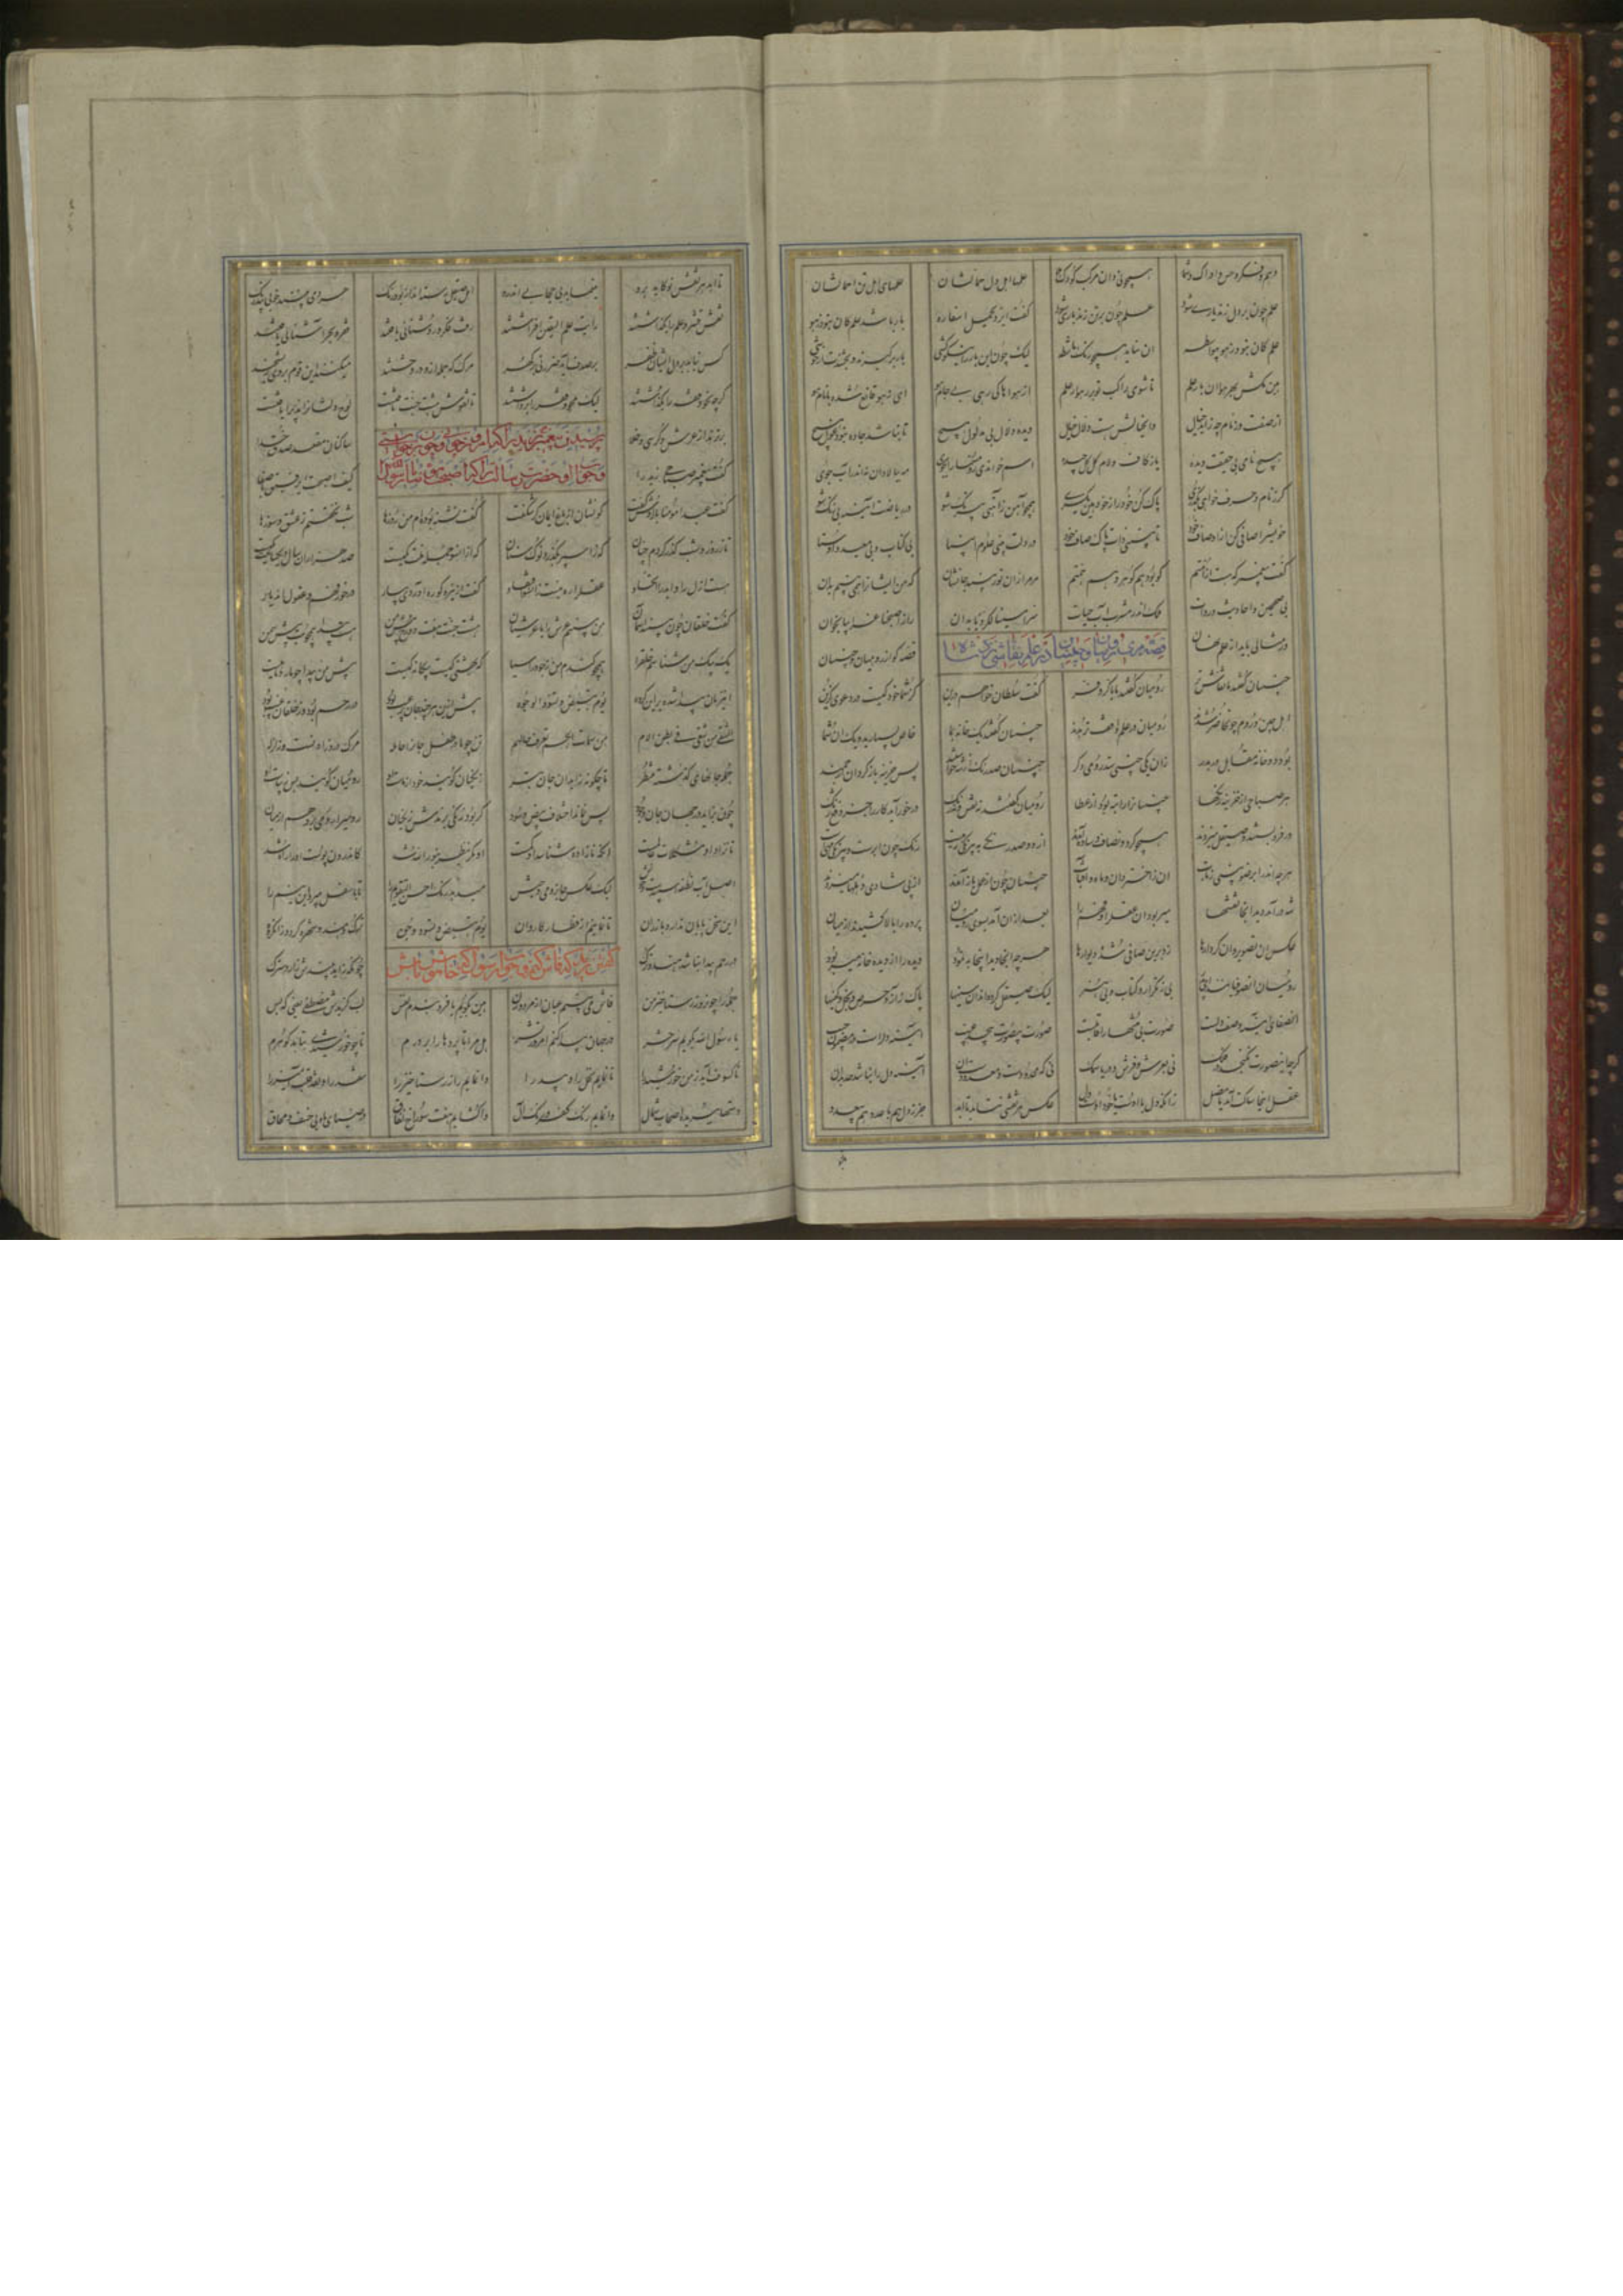 وهم و فکر و حس و ادراک شما همچو نی دان مرکب کودک هلا علمهای اهل دل حمالشان علمهای اهل تن احمالشان
علم چون بر دل زند یاری شود علم چون بر تن زند باری شود گفت ایزد یحمل اسفاره بار باشد علم کان نبود ز هو
علم کان نبود ز هو بی واسطه آن نپاید همچو رنگ ماشطه لیک چون این بار را نیکو کشی بار برگیرند و بخشندت خوشی
هین مکش بهر هوا آن بار علم تا شوی راکب تو بر رهوار علم از هواها کی رهی بی جام هو ای ز هو قانع شده با نام هو
از صفت وز نام چه زاید خیال وان خیالش هست دلال دیده دلال بی مدلول هیچ تا نباشد جاده نبود غول هیچ
هیچ نامی بی حقیقت دیده یا ز گاف و لام گل گل چیده اسم خواندی رو مسمی را بجوی مه ببالا دان نه اندر آب جوی
گر ز نام و حرف خواهی بگذری پاک کن خود را ز خود هین یکسری همچو آهن ز آهنی بی رنگ شو در ریاضت آینه بی زنگ شو
خویش را صافی کن از اوصاف خود تا ببینی ذات پاک صاف خود در دلت بینی علوم انبیا بی کتاب و بی معید و اوستا
گفت پیغمبر که هست از امتم کو بود هم گوهر و هم همتم مر مرا زان نور بیند جانشان که من ایشان را همی بینم بدان
بی صحیحین و احادیث و روات بلک اندر مشرب آب حیات سر امسینا لکردیا بدان راز اصبحنا عرابیا بخوان
قصه مری کردن رومیان و چینیان در علم نقاشی
ور مثالی باید از علم نهان قصه گو از رومیان و چینیان
چینیان گفتند ما نقاش تر رومیان گفتند ما را کر و فر گفت سلطان خواهم درین کز شما خود کیست در دعوی گزین
اهل چین و روم چون حاضر شدند رومیان در علم واقف تر بدند چینیان گفتند یک خانه بما خاص بسپارید و یک آن شما
بود دو خانه مقابل در بدر زان یکی چینی ستد رومی دگر چینیان صد رنگ از شه خواستند پس خزینه باز کرد آن ارجمند
هر صباحی از خزینه رنگها چینیان را راتبه بود از عطا رومیان گفتند نه نقش و نه رنگ در خور آید کار را جز دفع زنگ
در فرو بستند و صیقل میزدند همچو گردون صاف و ساده شدند از دو صد رنگی به بی رنگی رهیست رنگ چون ابرست و بی رنگی مهیست
هرچه اندر ابر ضو بینی و تاب آن ز اختر دان و ماه و آفتاب چینیان چون از عمل باز آمدند از پی شادی دهلها میزدند
شه در آمد دید آنجا نقشها می ربود آن عقل را و فهم را بعد از آن آمد بسوی رومیان پرده را بالا کشیدند از میان
عکس آن تصویر و آن کردارها زد برین صافی شده دیوارها هر چه آنجا دید اینجا به نمود دیده را از دیده خانه میربود
رومیان آن صوفیانند ای پدر بی ز تکرار و کتاب و بی هنر لیک صیقل کرده اند آن سینها پاک ز آز و حرص و بخل و کینها
آن صفای آینه وصف دلست صورت بی منتها را قابلست صورت بی صورت بیحد غیب آینه دل راست
گرچه این صورت نگنجد در فلک نی بعرش و فرش و دریا و سمک زانکه محدودست و معدودست آن آینه دل را نباشد حد بدان
عقل اینجا ساکت آمد یا مضل زانکه دل با اوست یا خود اوست دل عکس هر نقشی نتابد تا ابد جز ز دل هم با عدد هم بی عدد
تا ابد هر نقش نو کاید برو مینماید بی حجابی اندرو اهل صیقل رسته اند از بو و رنگ هر دمی بینند خوبی بی درنگ
نقش و قشر علم را بگذاشتند رایت علم الیقین افراشتند رفت فکر و روشنائی یافتند نحر و بحر آشنائی یافتند
کس نیابد بر دل ایشان ظفر بر صدف آید ضرر نی بر گهر مرگ کز وی جمله اندر وحشتند میکنند این قوم بر وی ریشخند
گرچه نحو و فقه را بگذاشتند لیک محو و فقر را برداشتند تا نقوش هشت جنت تافتست لوح دلشان را پذیرا یافتست
پرسیدن پیغمبر مر زید را که امروز چونی و چون برخاستی
و جواب او حضرت رسالت را که اصبحت مؤمنا یا رسول الله
برترند از عرش و کرسی و خلا ساکنان مقعد صدق خدا
گفت پیغمبر صباحی زید را کیف اصبحت ای رفیق با صفا
گفت عبدا مؤمنا باز اوش گفت کو نشان از باغ ایمان گر شکفت گفت تشنه بوده ام من روزها شب نخفتستم ز عشق و سوزها
تا ز روز و شب گذر کردم چنان که ز اسپر بگذرد نوک سنان که از آن سو جمله ملت یکیست صد هزاران سال و یک ساعت یکیست
هست ازل را و ابد را اتحاد عقل را ره نیست زانسو ز افتقاد گفت ازین ره کو ره آوردی بیار در خور فهم و عقول این دیار
گفت خلقان چون ببینند آسمان من ببینم عرش را با عرشیان هشت جنت هفت دوزخ پیش من هست پیدا همچو بت پیش شمن
یک بیک من میشناسم خلق را همچو گندم من ز جو در آسیا که بهشتی کیست و بیگانه کیست پیش من پیدا چو مار و ماهیست
این زمان پیدا شده بر این گروه یوم تبیض و تسود وجوه پیش ازین هر چند جان پر عیب بود در رحم بود و ز خلقان غیب بود
الشقی من شقی فی بطن الام من سمات الجسم یعرف حالهم تن چو مادر طفل جان را حامله مرگ درد زادنست و زلزله
جمله جانهای گذشته منتظر تا چگونه زاید آن جان بطر زنگیان گویند خود از ماست او رومیان گویند بس زیباست او
چون بزاید در جهان جان و جود پس نماند اختلاف بیض و سود گر بود زنگی برندش زنگیان روم را رومی برد هم از میان
تا نزاد او مشکلات عالمست آنکه نازاده شناسد او کمست او مگر ینظر بنور الله بود کاندرون پوست او را ره بود
اصل آب نطفه اسپیدست و خوش لیک عکس جان رومی و حبش میدهد رنگ احسن التقویم را تا باسفل میبرد این نیم را
این سخن پایان ندارد باز ران تا نمانیم از قطار کاروان یوم تبیض و تسود وجوه ترک و هندو شهره گردد زان گروه
گفتن زید که فاش کنم و جواب رسول که خاموش باش
در رحم پیدا نباشد هند و ترک چونکه زاید بیندش زار و سترگ
جمله را چون روز رستاخیز من فاش می بینم عیان از مرد و زن هین بگویم یا فرو بندم نفس لب گزیدش مصطفی یعنی که بس
یا رسول الله بگویم سر حشر در جهان پیدا کنم امروز نشر هل مرا تا پرده ها را بر درم تا چو خورشیدی بتابد گوهرم
تا کسوف آید ز من خورشید را تا نمایم نخل را و بید را وانمایم راز رستاخیز را نقد را و نقد قلب آمیز را
دستها ببریده اصحاب شمال وانمایم رنگ کفر و رنگ آل واگشایم هفت سوراخ نفاق در ضیای ماه بی خسف و محاق